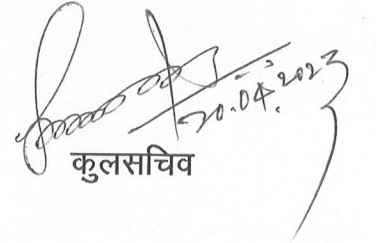 20.04.2023
कुलसचिव